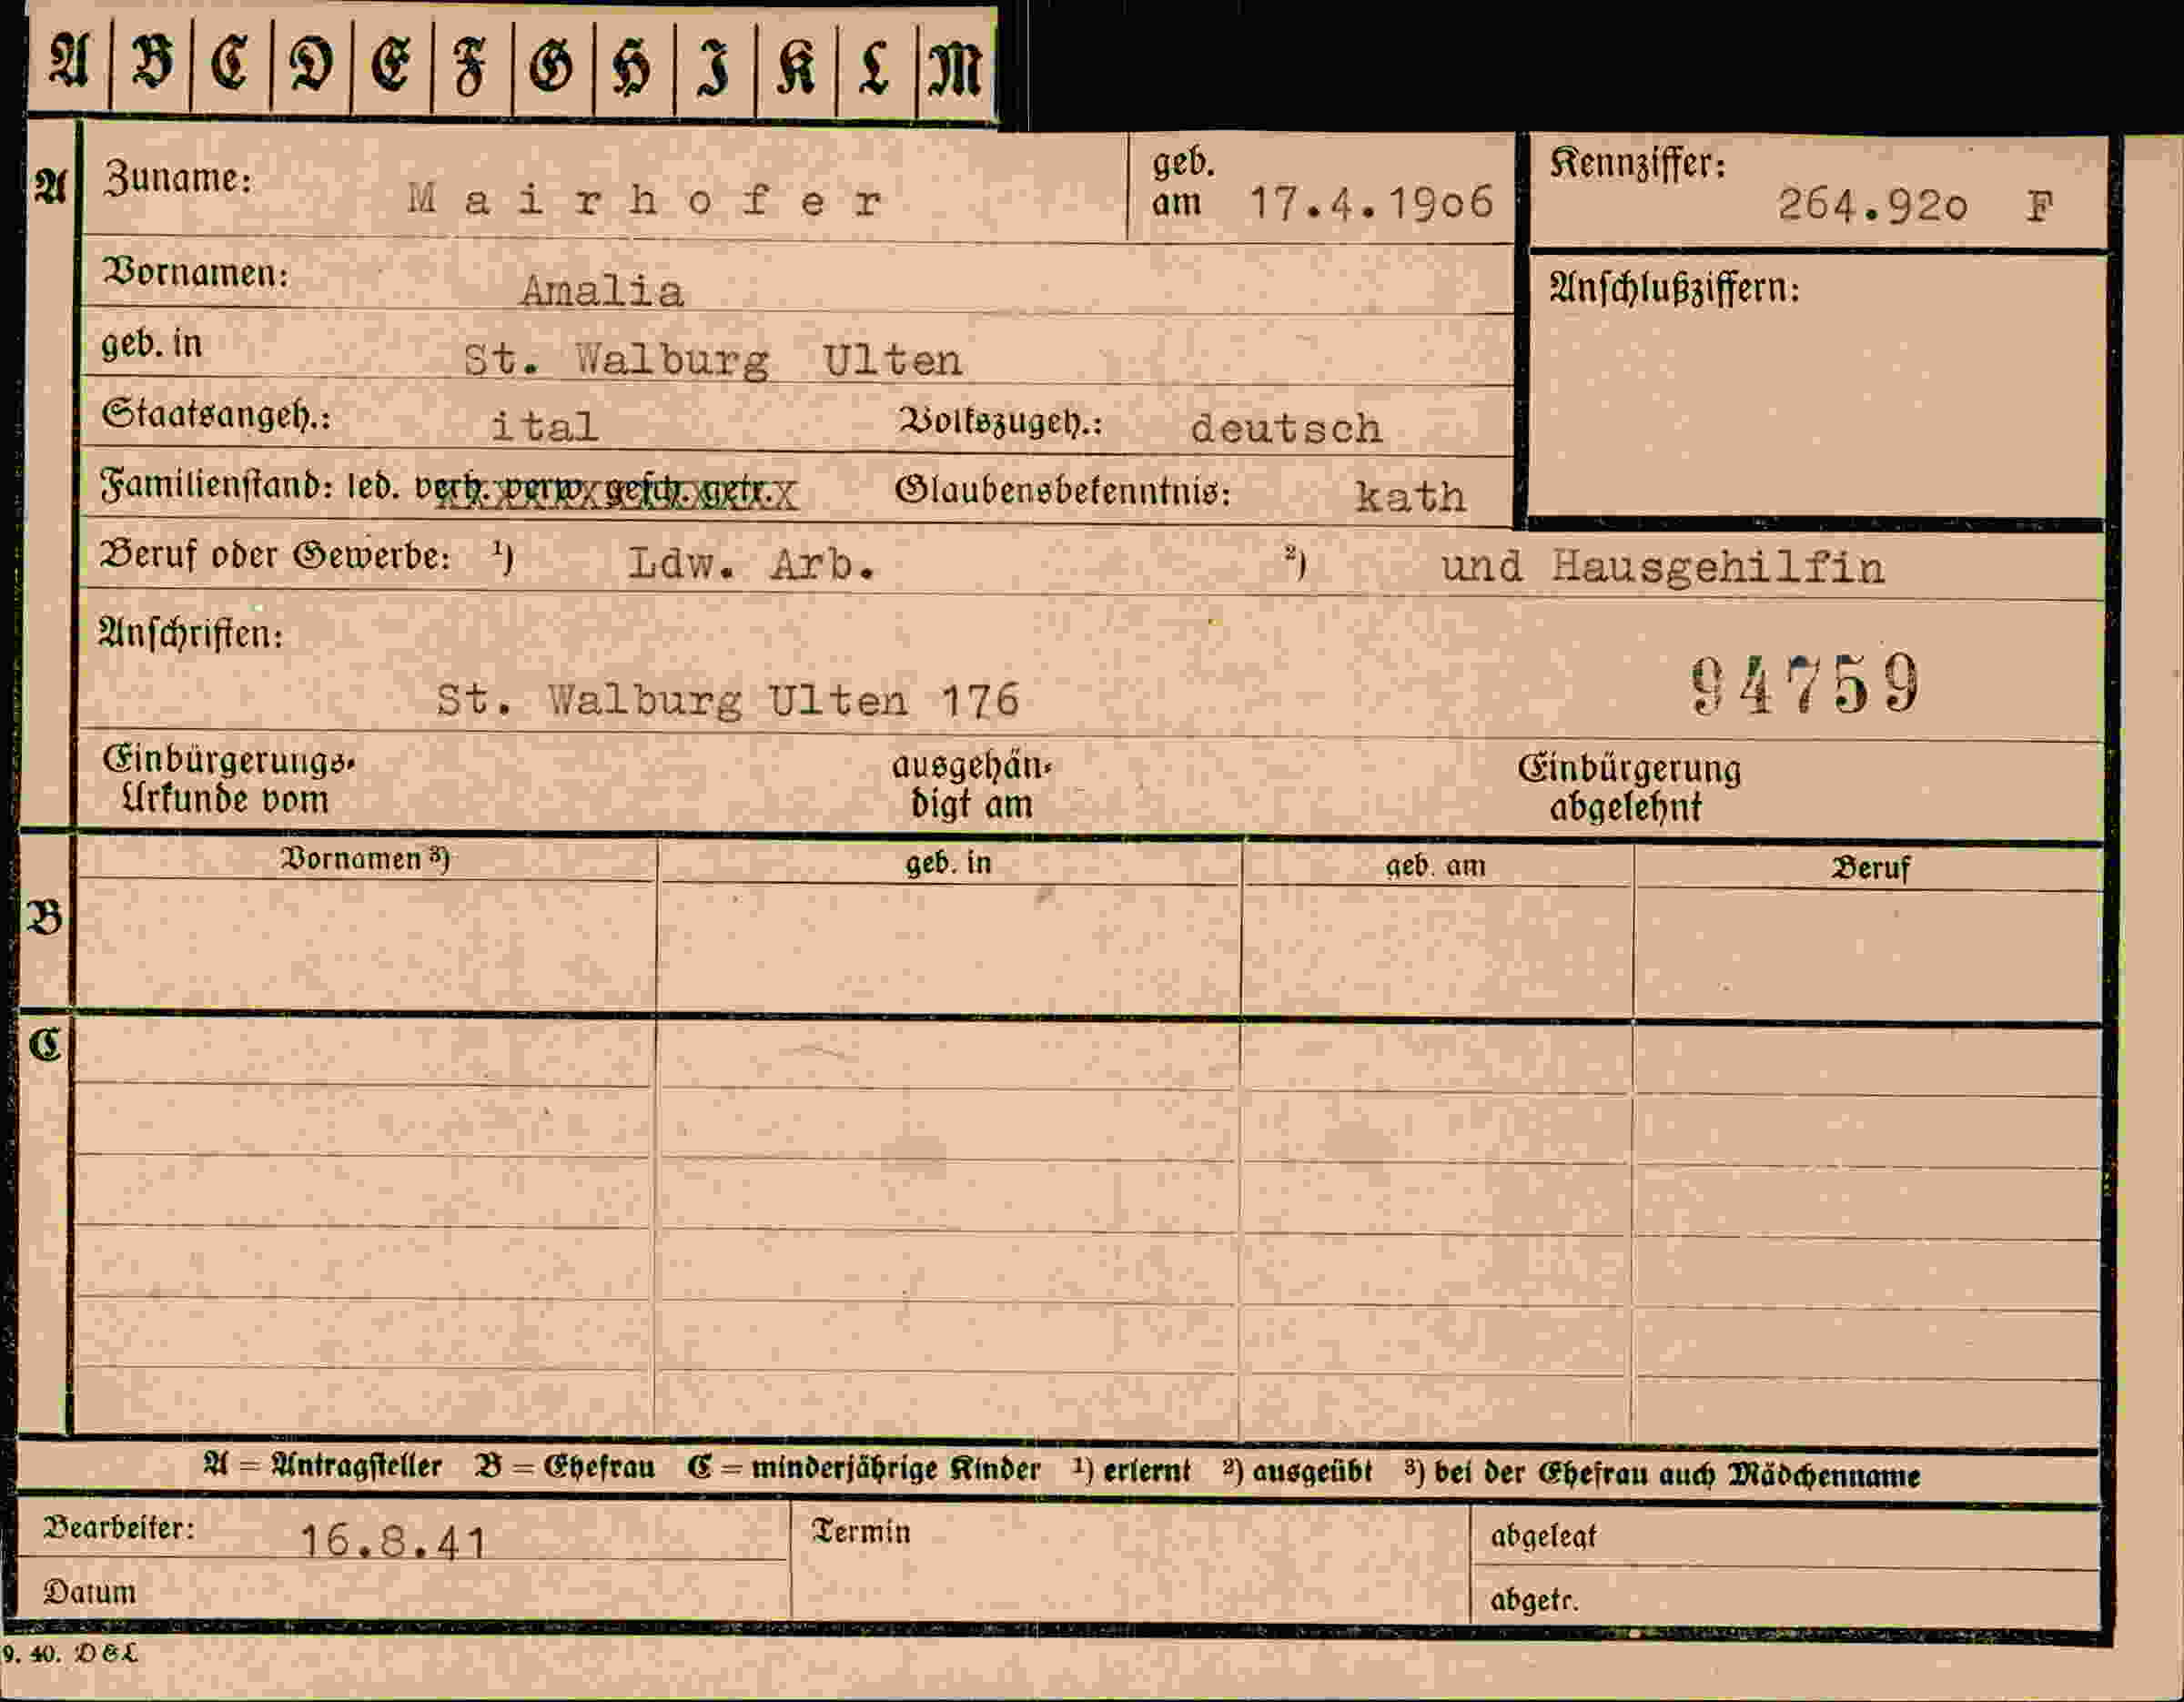 A B C D E F G H I K L M
A Zuname: Mairhofer geb. am 17.4.1906 Kennziffer: 264.920 F
Vornamen: Amalia Anschlußziffern:
geb. in St. Walburg Ulten
Staatsangeh.: ital Volkszugeh.: deutsch
Familienstand: led. verh. verw. gesch. getr. Glaubensbekenntnis: kath
Beruf oder Gewerbe: 1) Ldw. Arb. 2) und Hausgehilfin
Anschriften:
94759
St. Walburg Ulten 176
Einbürgerungs- ausgehän- Einbürgerung
Urkunde vom digt am abgelehnt
Vornamen 3) geb. in geb. am Beruf
B
C
A = Antragsteller B = Ehefrau C = minderjährige Kinder 1) erlernt 2) ausgeübt 3) bei der Ehefrau auch Mädchenname
Bearbeiter: 16.8.41 Termin abgelegt
Datum abgetr.
9. 40. D&L